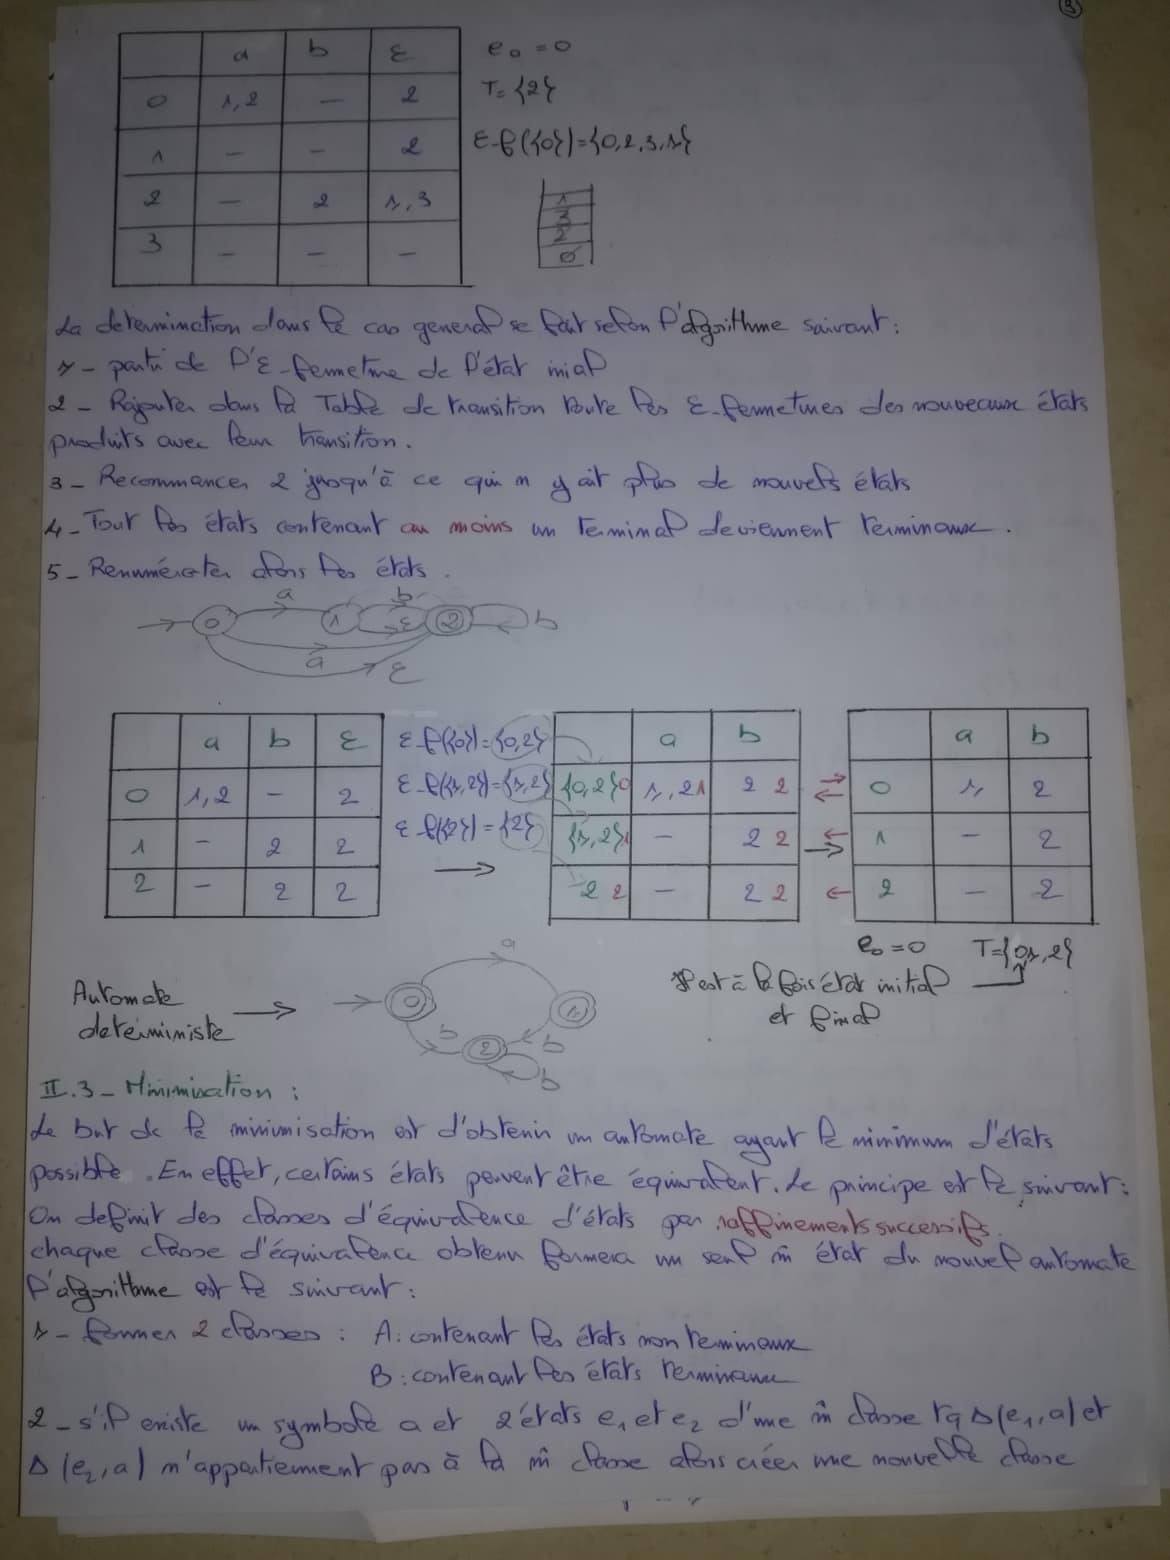 3
a b ε
0 1,2 — 2
1 — — 2
2 — 2 1,3
3 — — —
e0 = 0
T = {2}
ε-f({0}) = {0,2,3,1}
1
3
2
0
La determination dans le cas general se fait selon l'algorithme suivant :
1 - partir de l'ε-fermeture de l'état inial
2 - Rajouter dans la Table de transition toute les ε-fermetures des nouveaux états
produits avec leur transition.
3 - Recommancer 2 jusqu'à ce qui n y ait plus de nouvels états
4 - Tout les états contenant au moins un terminal deviennent terminaux.
5 - Renuméroter alors les états.
a b
0 1 ε 2 b
a
ε
a b ε
0 1,2 - 2
1 - 2 2
2 - 2 2
ε-f({0}) = {0,2}
ε-f({1,2}) = {1,2}
ε-f({2}) = {2}
a b
{0,2} 0 1,2 1 2 2
{1,2} 1 — 2 2
2 2 — 2 2
a b
0 1 2
1 — 2
2 — 2
e0 = 0 T = {0,1,2}
Il est à la fois état initial
et final
Automate
déterministe
a
0 1
b 2 b
b
II.3 - Minimisation :
Le but de la minimisation est d'obtenir un automate ayant le minimum d'états
possible. En effet, certains états peuvent être équivalent. Le principe est le suivant :
On definit des classes d'équivalence d'états par raffinements successifs.
chaque classe d'équivalence obtenu formera un seul m̂ état du nouvel automate
l'algorithme est le suivant :
1 - former 2 classes : A : contenant les états non terminaux
B : contenant les états terminaux
2 - s'il existe un symbole a et 2 états e1 et e2 d'une m̂ classe tq Δ(e1, a) et
Δ(e2, a) n'appartiennent pas à la m̂ classe alors créer une nouvelle classe